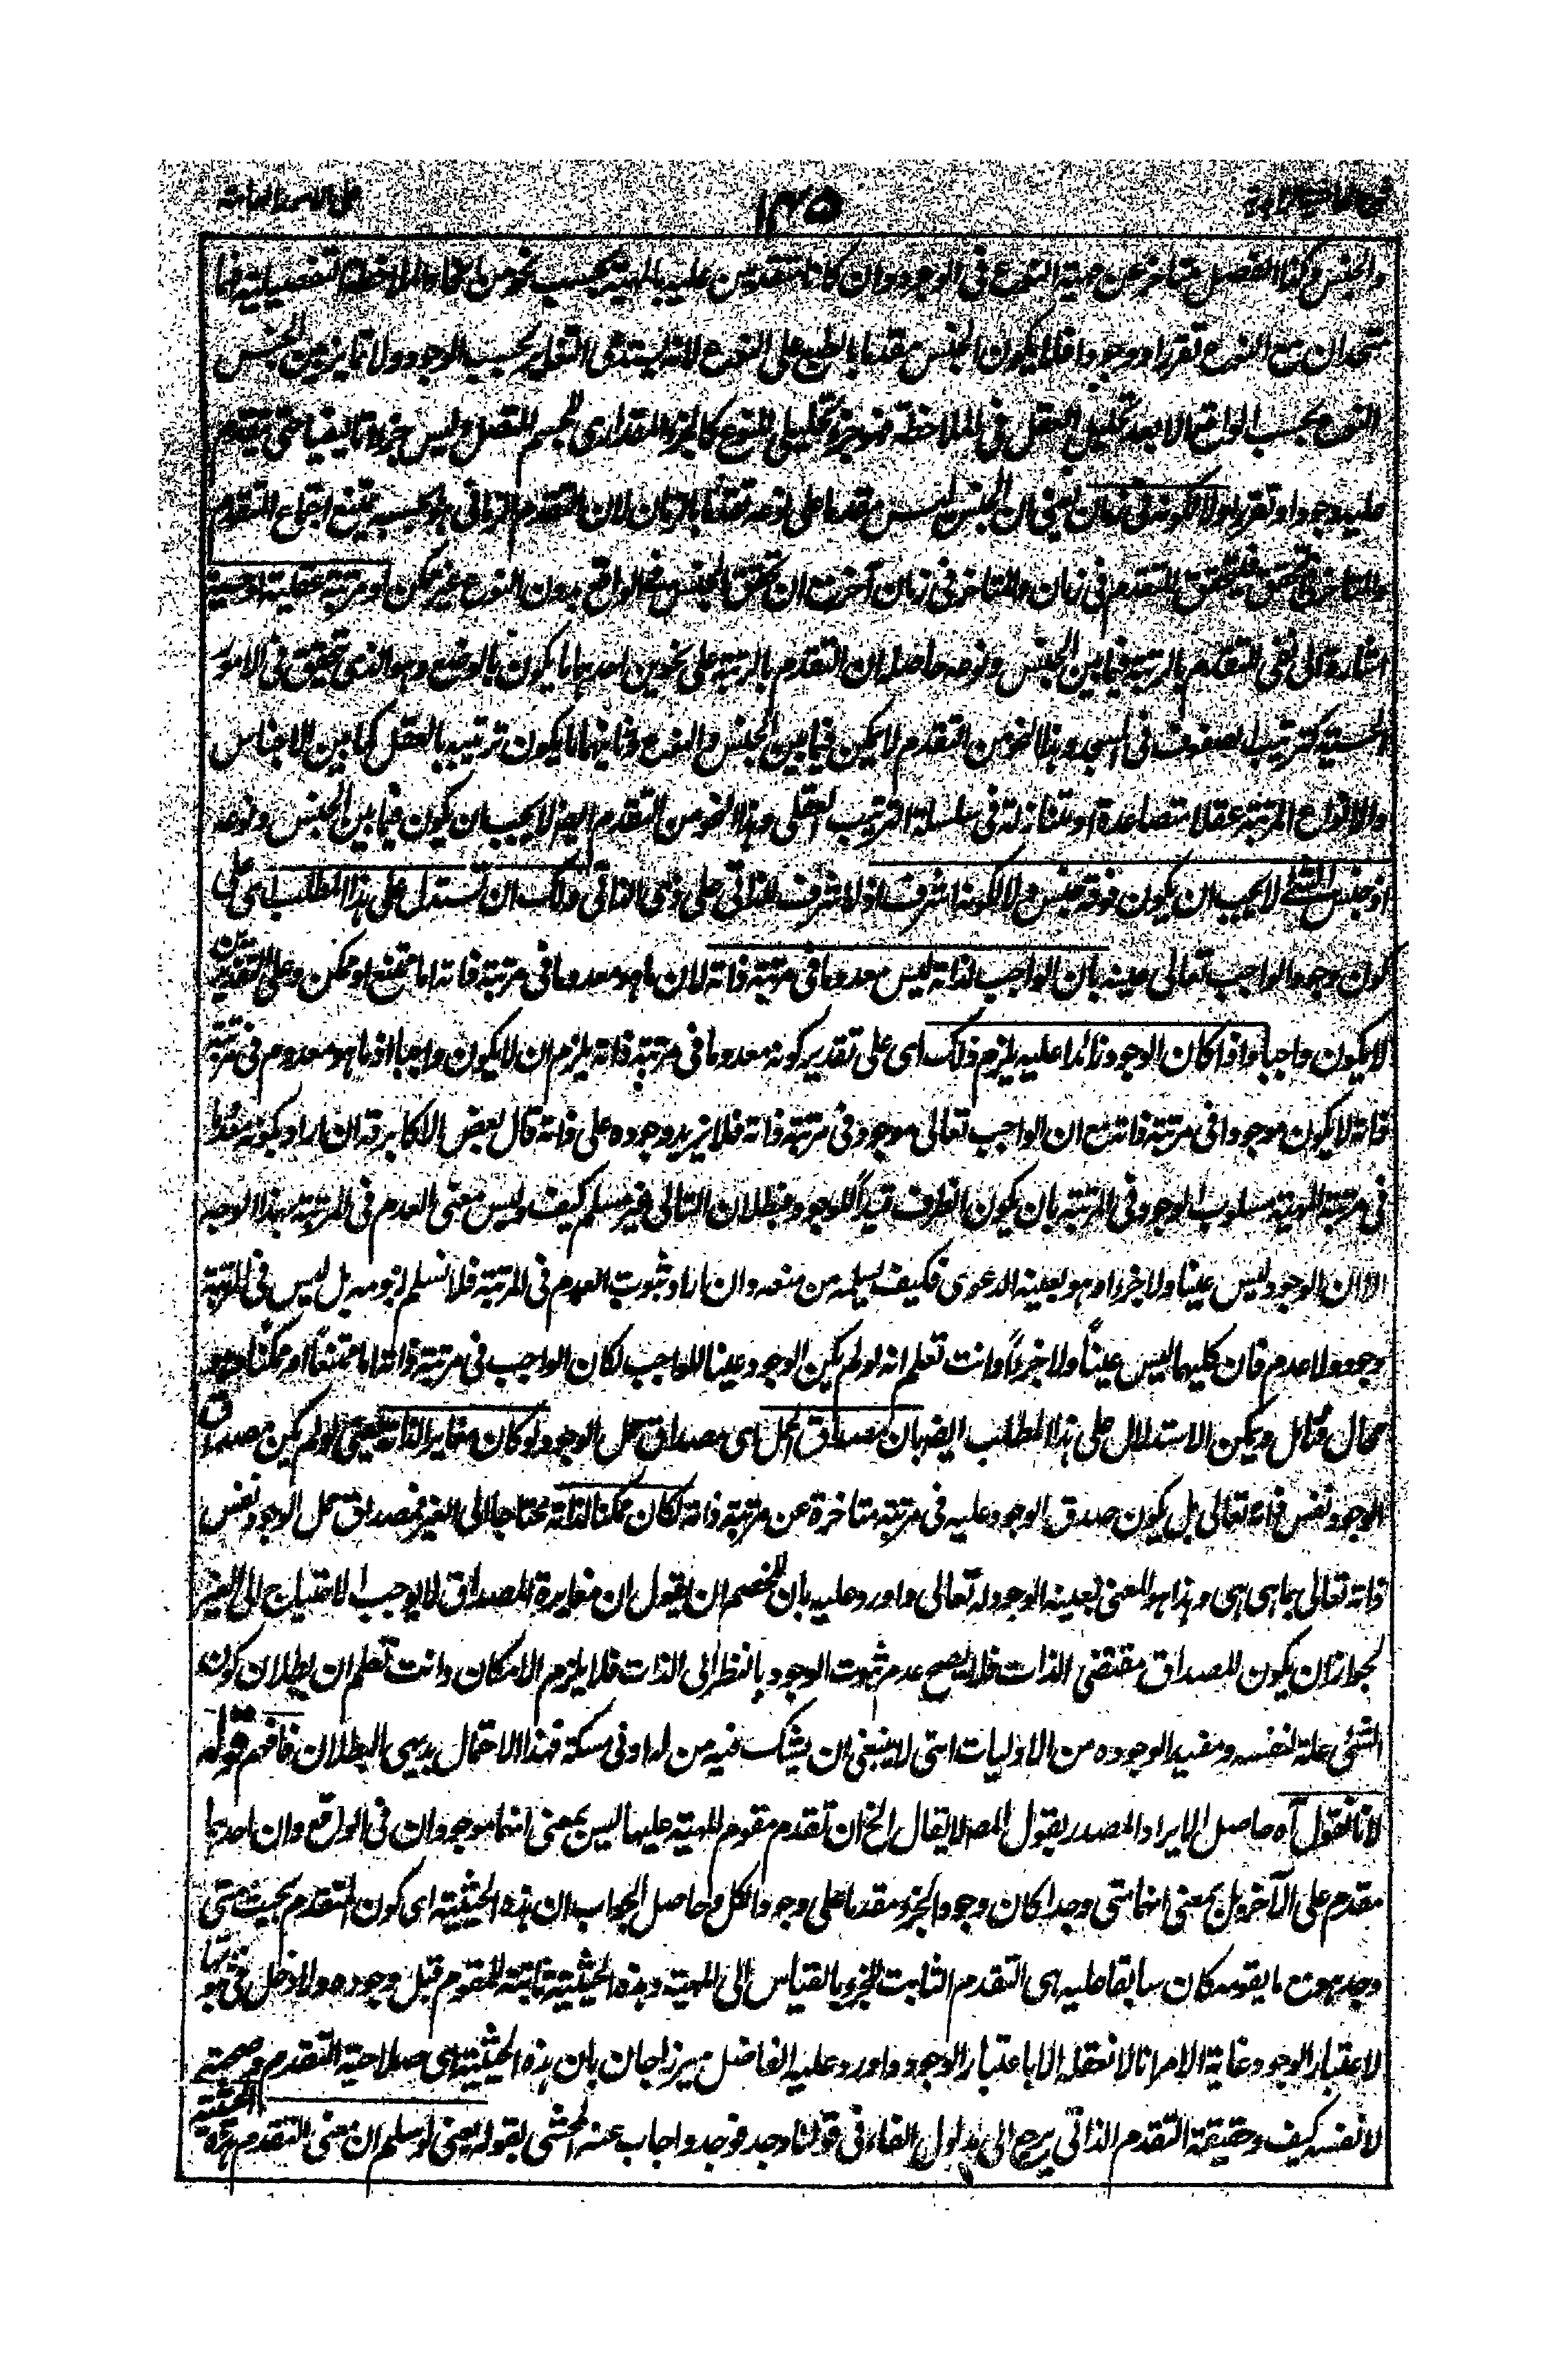 ١٣٥
والجنس وكذا الفصل متاخر عن مهية النوع فى الوجود وان كانا متقدمين عليه بالمهية بحسب نحو من انحاء الملاحظة التفصيلية فانهما
متحدان مع النوع تقررا ووجودا فلا يكون الجنس مقدما بالطبع على النوع لانه يستدعى التغاير بحسب الوجود ولا تمايز بين الجنس
النوع بحسب الواقع الا بعد تحليل العقل فى الملاحظة فهو جزء تحليلى للنوع كالجزء المقدارى للجسم المتصل وليس جزءا تاليفيا حتى يتقدم
عليه وجودا وتقررا ولا لكونه فى زمان يعنى ان الجنس ليس مقدما على نوعه تقدما بالزمان لان التقدم الزمانى هو بحسبه يمتنع اجتماع المتقدم
والمتاخر فى التحقق فيتحقق المتقدم فى زمان والمتاخر فى زمان آخر مع ان تحقق الجنس فى الواقع بدون النوع غير ممكن او مرتبة عقلية او حسية
اشارة الى نفى التقدم بالرتبة فيما بين الجنس ونوعه حاصله ان التقدم بالرتبة على نحوين احدهما ما يكون بالوضع وهو الذى تحقق فى الامور
الحسية كترتيب الصفوف فى المسجد وهذا النحو من التقدم لا يمكن فيما بين الجنس والنوع وثانيهما ما يكون ترتيبه بالعقل كما بين الاجناس
والانواع المرتبة عقلا متصاعدة او متنازلة فى سلسلة الترتيب العقلى وهذا النحو من التقدم ايضا لا يجب ان يكون فيما بين الجنس ونوعه
اذ جنس الشئ لا يجب ان يكون فوقه جنس ولا لكونه اشرف اذ لا شرف للذاتى على ذى الذاتى ولك ان تستدل على هذا المطلب اى على
كون وجود الواجب تعالى عينه بان الواجب لذاته ليس معدوما فى مرتبة ذاته لان ما هو معدوم فى مرتبة ذاته اما ممتنع او ممكن وعلى التقديرين
لا يكون واجبا واذا كان الوجود زائدا عليه يلزم ذلك اى على تقدير كونه معدوما فى مرتبة ذاته يلزم ان لا يكون واجبا اذ ما هو معدوم فى مرتبة
ذاته لا يكون موجودا فى مرتبة ذاته مع ان الواجب تعالى موجود فى مرتبة ذاته فلا يزيد وجوده على ذاته قال بعض الاكابر قه ان اراد بكونه معدوما
فى مرتبة المهية مسلوب الوجود فى المرتبة بان يكون الظرف قيداً للوجود فبطلان التالى غير مسلم كيف وليس معنى العدم فى المرتبة بهذا الوجه
الا ان الوجود ليس عينا ولا جزءا وهو بعينه الدعوى فكيف يسلمه من منعه وان اراد ثبوت العدم فى المرتبة فلا نسلم لزومه بل ليس فى المرتبة
وجود ولا عدم فان كليهما ليس عيناً ولا جزءاً وانت تعلم انه لو لم يكن الوجود عينا للواجب لكان الواجب فى مرتبة ذاته اما ممتنعاً او ممكنا وهو
محال فتامل ويمكن الاستدلال على هذا المطلب ايضا بان مصداق الحمل اى مصداق حمل الوجود لو كان مغايرا لذاته يعنى لو لم يكن مصداق
الوجود نفس ذاته تعالى بل يكون صدق الوجود عليه فى مرتبة متاخرة عن مرتبة ذاته لكان ممكنا لذاته محتاجا الى الغير فمصداق حمل الوجود نفس
ذاته تعالى بما هى هى وهذا هو المعنى بعينية الوجود له تعالى واورد عليه بان للخصم ان يقول ان مغايرة المصداق لا يوجب الاحتياج الى الغير
لجواز ان يكون المصداق مقتضى الذات فلا يصح عدم ثبوت الوجود بالنظر الى الذات فلا يلزم الامكان وانت تعلم ان بطلان كون
الشئ علة لنفسه ومفيدا لوجوده من الاوليات التى لا ينبغى ان يشك فيه من له ادنى مسكة فهذا الاحتمال بديهى البطلان فافهم قوله
لانا نقول آه حاصل الايراد المصدر بقول المصـ لا يقال الخ ان تقدم مقوم المهية عليها ليس بمعنى انهما موجودان فى الواقع وان احدهما
مقدم على الآخر بل بمعنى انهما متى وجدا كان وجود الجزء مقدما على وجود الكل وحاصل الجواب ان هذه الحيثية اى كون المتقدم بحيث متى
وجد هو مع ما يقومه كان سابقا عليه هى التقدم الثابت للجزء بالقياس الى المهية وهذه الحيثية ثابتة للمقوم قبل وجوده ولا دخل فى ثبوتها
لاعتبار الوجود غاية الامر انا لا نعقله الا باعتبار الوجود واورد عليه الفاضل ميرزا جان بان هذه الحيثية هى صلاحية التقدم وصحته
لا نفسه كيف وحقيقة التقدم الذاتى يرجع الى مدلول الفاء فى قولنا وجد فوجد واجاب عنه المحشى بقوله يعنى لو سلم ان معنى التقدم هذه الحيثية